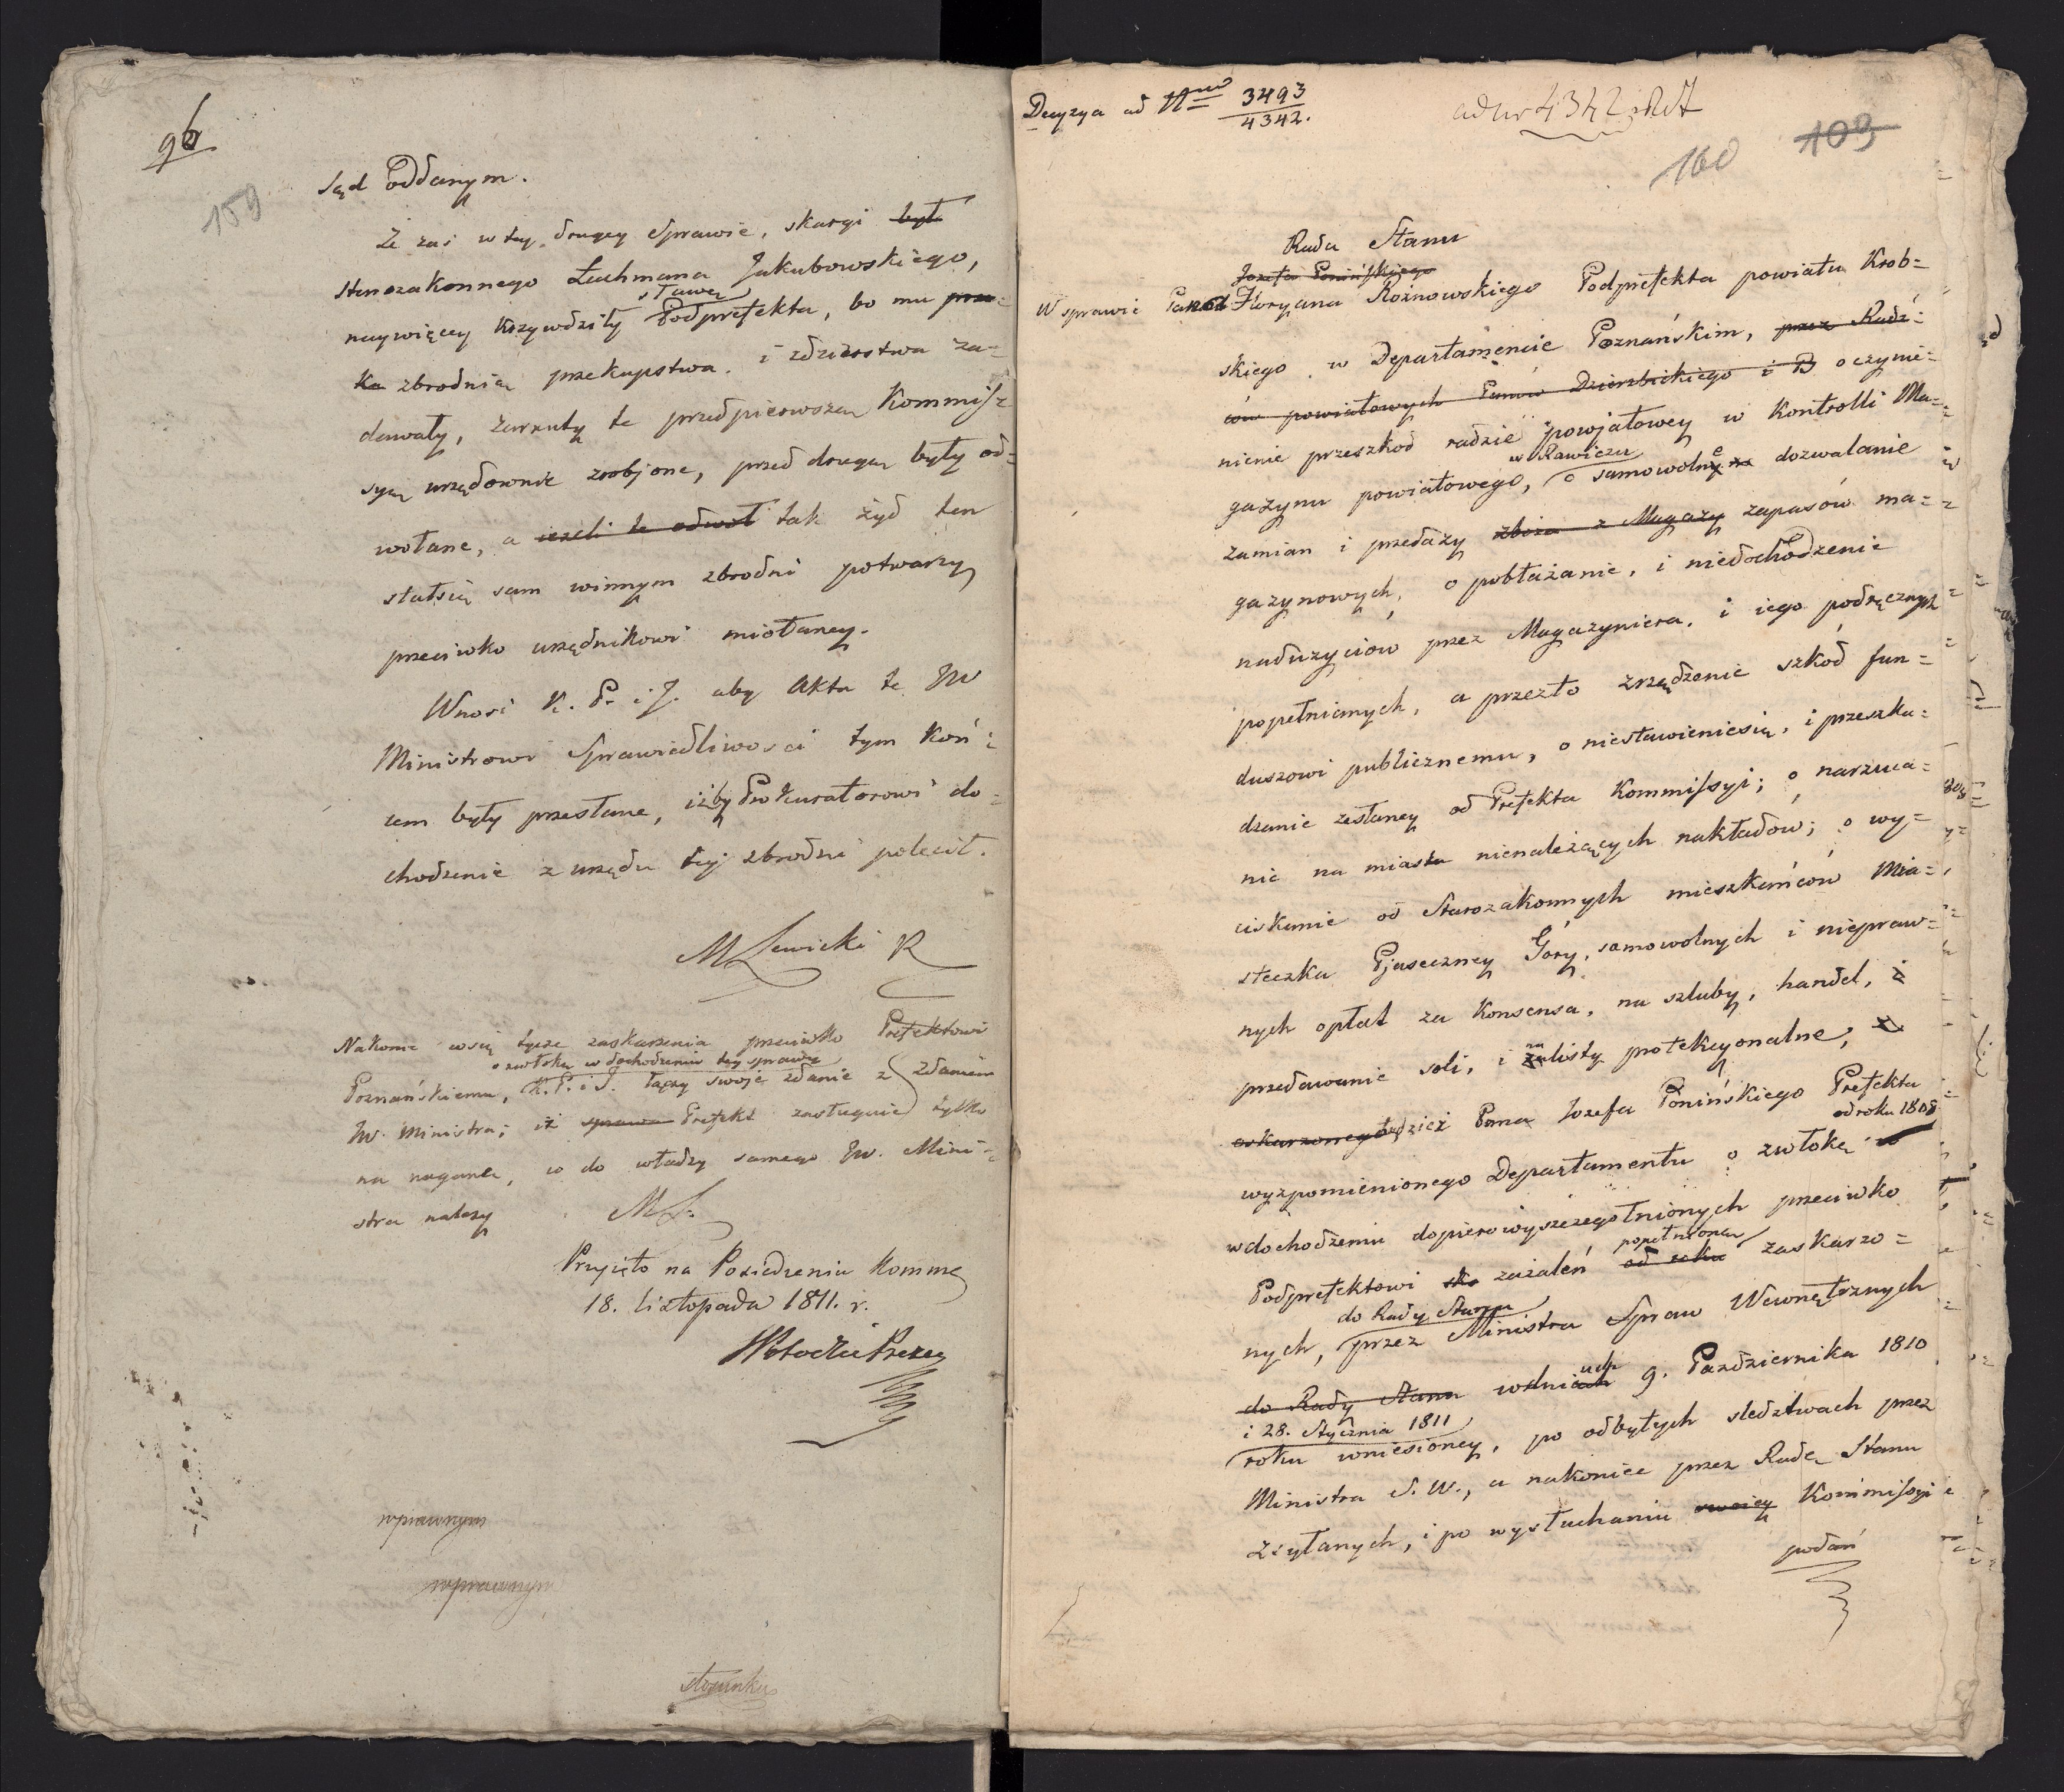 96
159
Sąd oddanym.
Że zaś w tey drugey Sprawie, skargi był
starozakonnego Lachmana Jakubowskiego,
naywięcey krzywdziły sławę Podprefekta, bo mu prze=
ka zbrodnią przekupstwa i zdzierstwa za=
dawały, zarzuty te przed pierwszą Kommis=
syą urzędownie zrobjone, przed drugą były od=
wołane, a ieżeli te odwoł tak żyd ten
stałsię sam winnym zbrodni potwarzy
przeciwko urzędnikowi miotaney.
Wnosi K. P. i J. aby Akta te JW
Ministrowi Sprawiedliwosci tym koń=
cem były przesłane, iżby Prokuratorowi do=
chodzenie z urzędu tej zbrodni polecił.
MLewicki R
Nakoniec wsię tycze zaskarżenia przeciwko Prefektowi
o zwłokę w dochodzeniu tey sprawy
Poznańskiemu, K. P. i J. łączy swoje zdanie z zdaniem
JW. Ministra; iż sprawa Prefekt zasługuie tylko
na naganę, co do władzy samego JW. Mini=
stra należy
ML.
Przyięto na Posiedzeniu Kommey
18. listopada 1811. r.
Prezes
wprawnym
wprawnym
stosunku
Decyzya ad Nrw 3493
4342.
ad nr 4342 R
160 103
Rada Stanu
Jozefa Ponińskiego
W sprawie Pana Floryana Rożnowskiego Podprefekta powiatu Krob=
skiego w Departamencie Poznańskim, przez Radz=
ców powiatowych Panów Dzierzbickiego i B o czynie=
nienie przeszkod radzie powjatowey w Kontrolli Ma=
w Rawiczu
gazynu powiatowego, o samowolne na dozwalanie
zamian i przedaży zboża z Magazy zapasów ma=
gazynowych, o pobłażanie, i niedochodzenie
nadużyciow przez Magazyniera, i iego podręcznych
popełnianych, a przezto zrządzenie szkod fun=
duszowi publicznemu, o niestawieniesię, i przeszka=
dzanie zesłaney od Prefekta Kommissyi; o narzuca=
nie na miasta nienależących nakładów; o wy=
ciskanie od Starozakonnych mieszkańców Mia=
steczka Pjaseczney Góry, samowolnych i niepraw=
nych opłat za Konsensa, na szluby, handel, i
przedawanie soli, i na listy protekcyonalne; i
oskarzonego tudzież Pana Jozefa Ponińskiego Prefekta
od roku 1808
wyzpomienionego Departamentu o zwłokę w
w dochodzeniu dopiero wyszczegolnionych przeciwko
popełnioną
Podprefektowi sko zażaleń od roku zaskarzo=
do Rady Stanu
nych, przez Ministra Spraw Wewnętrznych
do Rady Stanu w dniach 9. Października 1810
i 28. Stycznia 1811
roku wniesioney, po odbytych sledztwach przez
Ministra S. W., a nakoniec przez Radę Stanu
zsyłanych, i po wysłuchaniu swoiey Kommissyi
podań